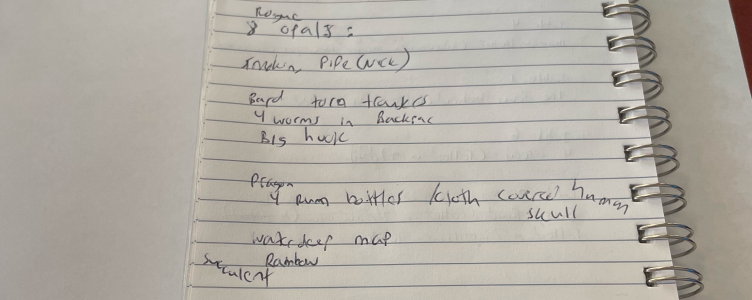 Rogue
8 opals:
Pipe (Nick)
Bard torn
4 worms in Backsac
Big hook
4 Rum bottles /cloth covered human
skull
waterdeep map
Rainbow
Succulent